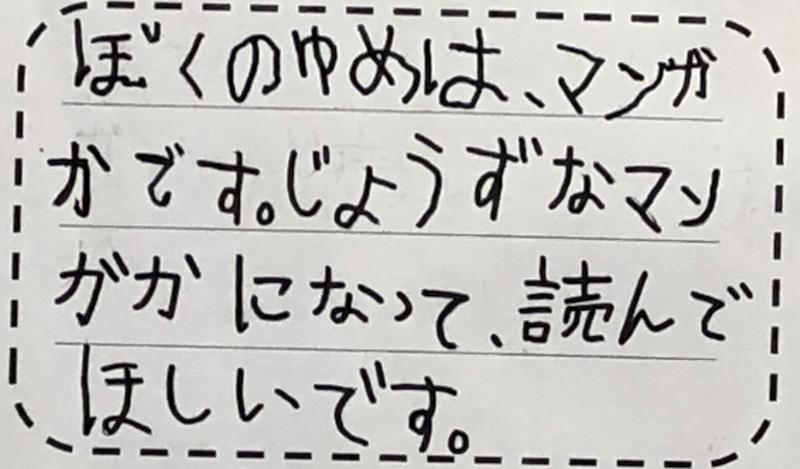 ぼくのゆめは、マンガ
かです。じょうずなマン
ガかになって、読んで
ほしいです。